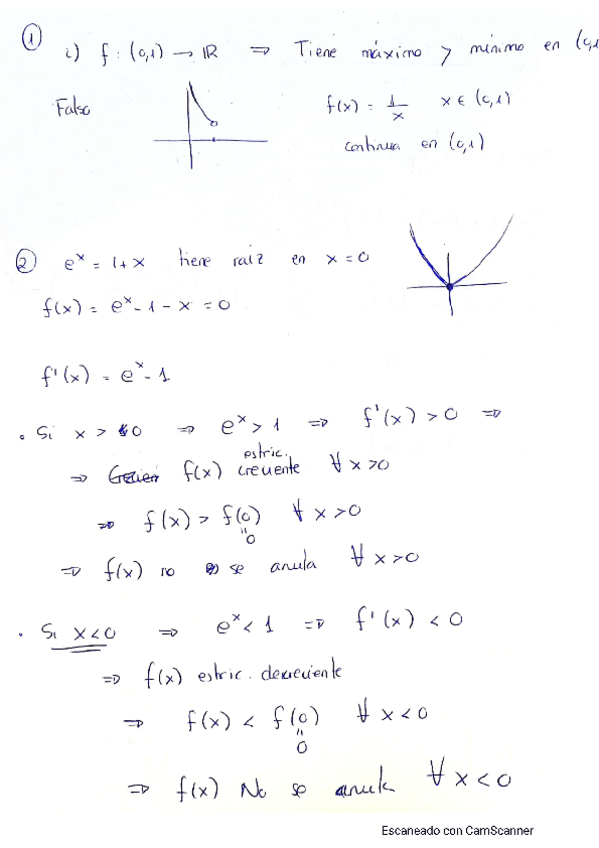 ① i) f : (0,1) → ℝ ⇒ Tiene máximo y mínimo en (0,1
Falso
f(x) = 1/x x ∈ (0,1)
continua en (0,1)
② e^x = 1 + x tiene raíz en x = 0
f(x) = e^x - 1 - x = 0
f'(x) = e^x - 1
• Si x > 0 ⇒ e^x > 1 ⇒ f'(x) > 0 ⇒
⇒ f(x) estric. creciente ∀ x > 0
⇒ f(x) > f(0) ∀ x > 0
"
0
⇒ f(x) no se anula ∀ x > 0
• Si x < 0 ⇒ e^x < 1 ⇒ f'(x) < 0
⇒ f(x) estric. decreciente
⇒ f(x) < f(0) ∀ x < 0
"
0
⇒ f(x) No se anula ∀ x < 0
Escaneado con CamScanner